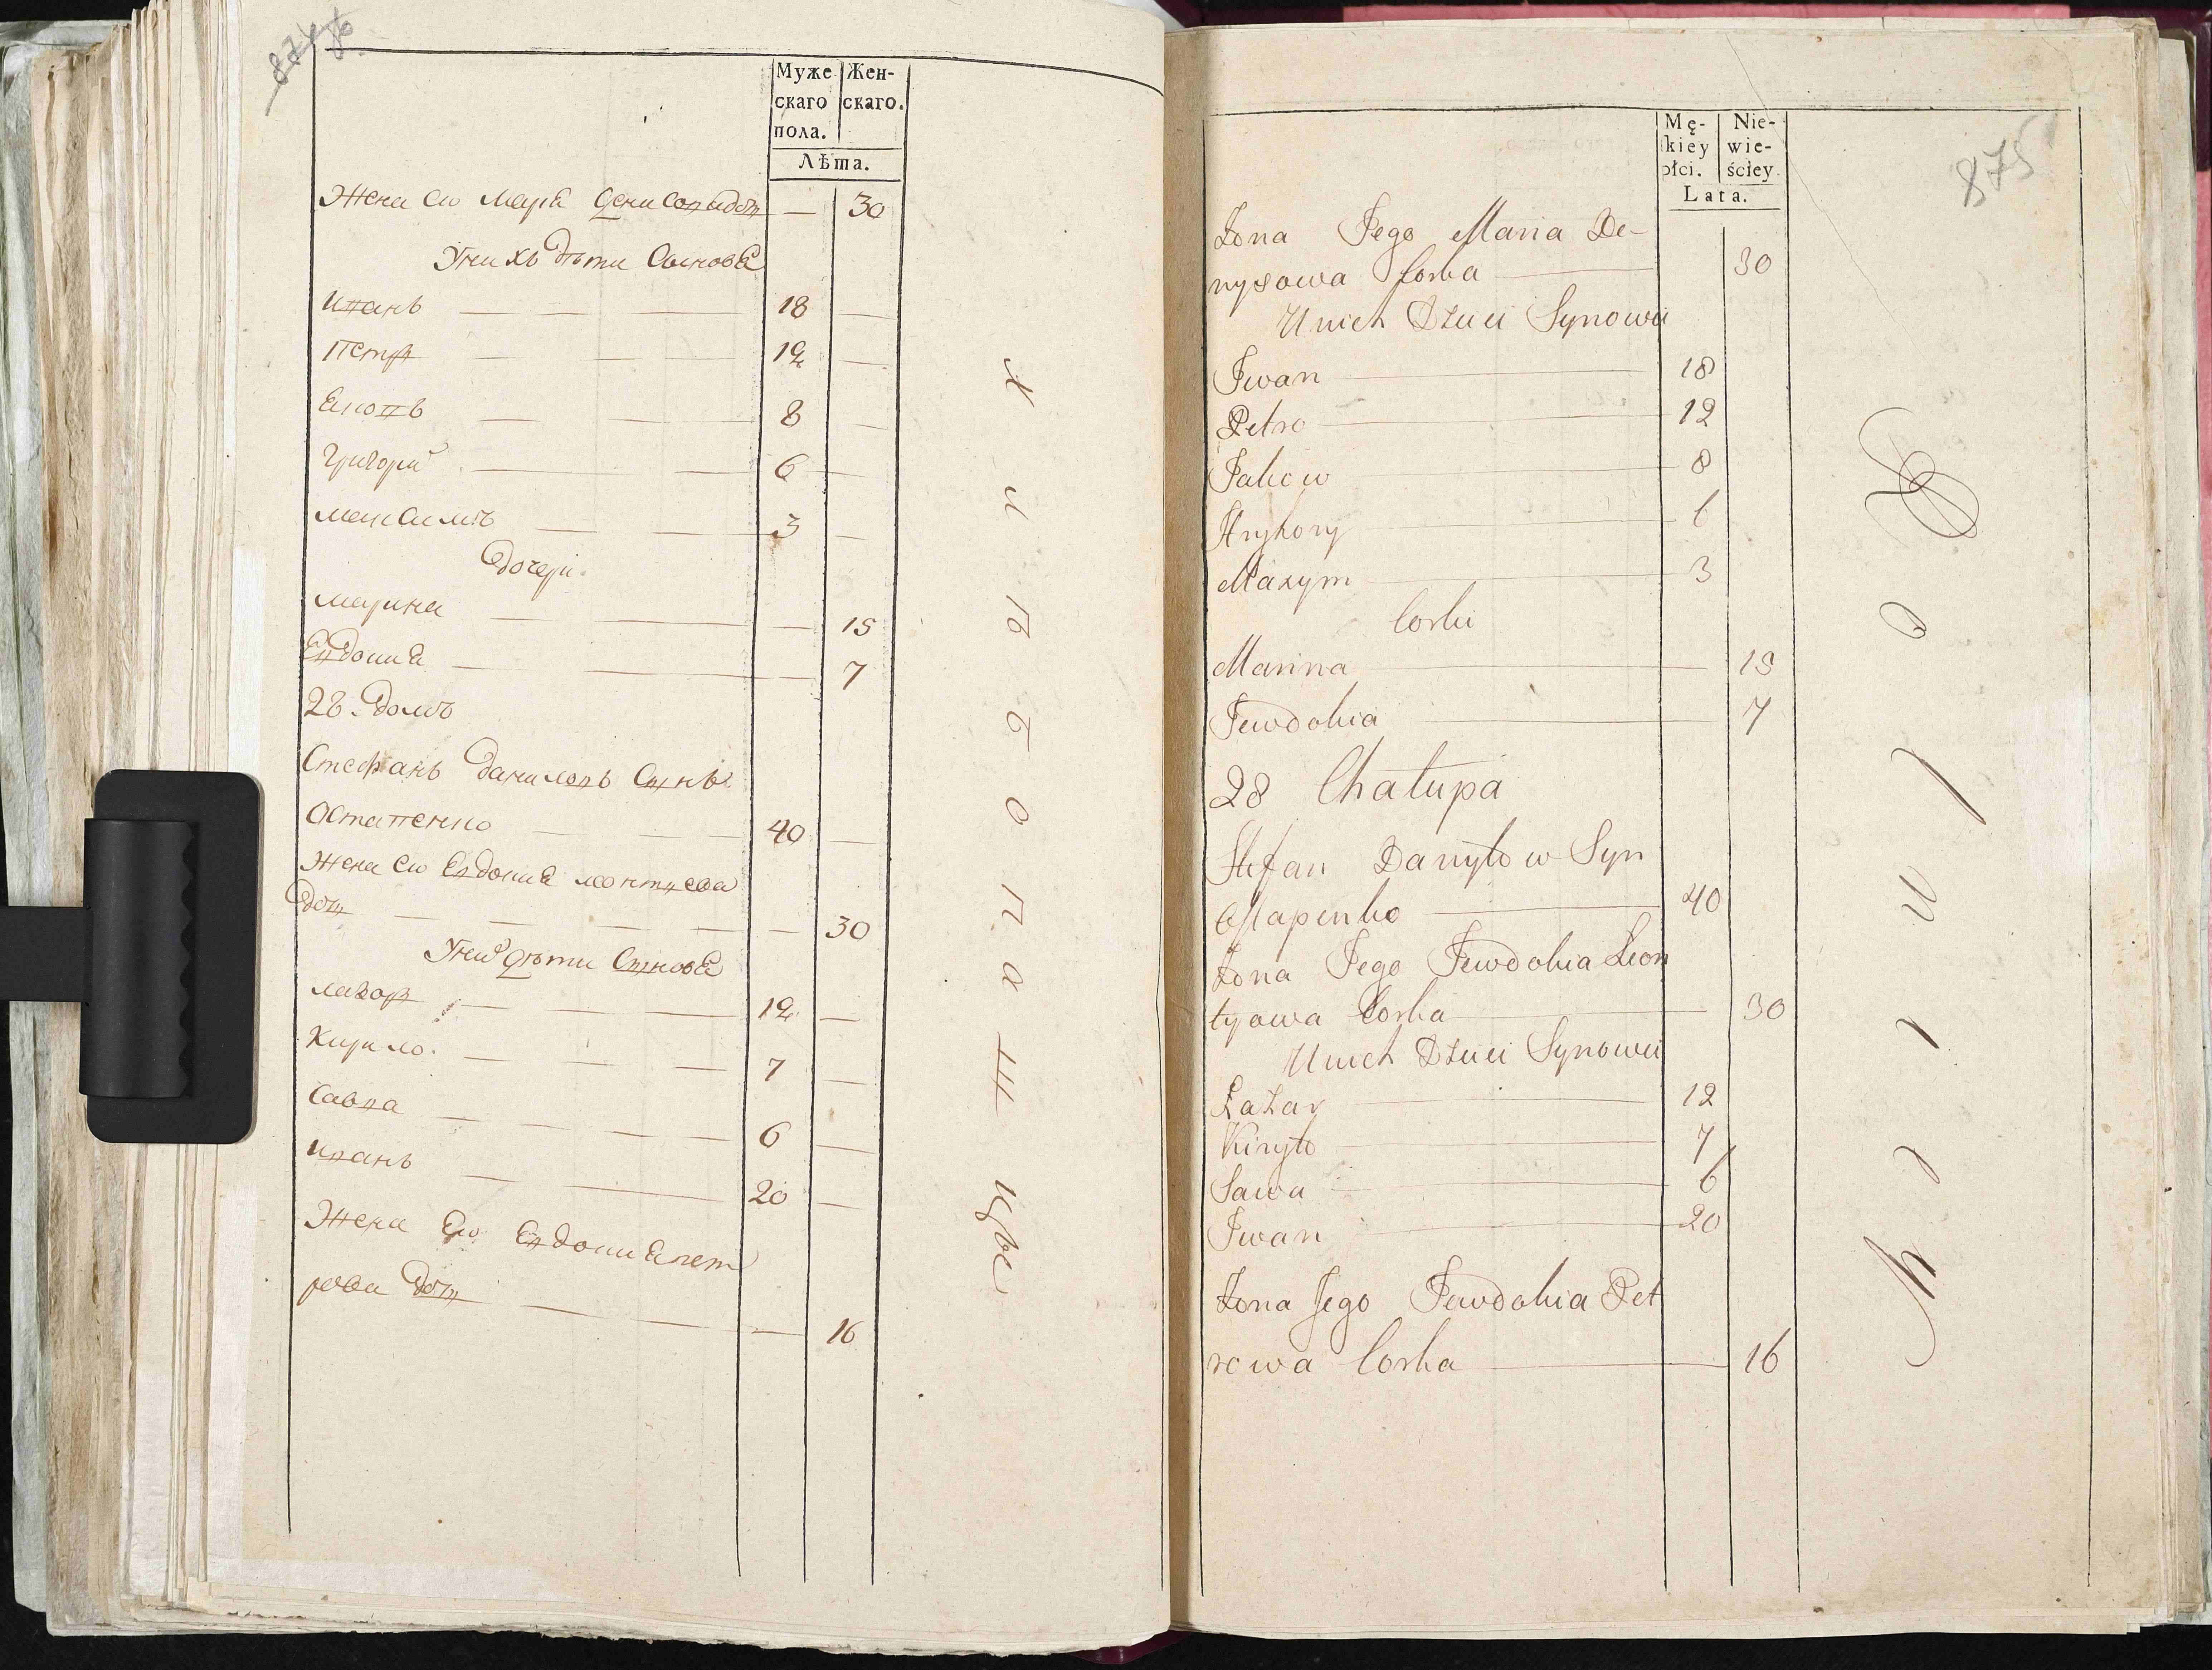 Муже
скаго
пола.
Жен-
скаго.
Лѣта.
Жена его Марія Денисовадоч — 30
Унихъ дѣти Сынове
Иванъ — 18 —
Петръ — 12 —
Яковъ — 8 —
Григорій — 6 —
Максимъ — 3 —
Дочери
Марина — 15
Евдокія — 7
28. Домъ
Стефанъ Даниловъ Сынъ
Остапенко — 40 —
Жена его Евдокія Леонтьева
Доч — 30
Унихъ дѣти Сынове
Лазоръ — 12 —
Кирило — 7 —
Савва — 6 —
Иванъ — 20 —
Жена Его Евдокія Пет
рова Доч — 16
Х л ѣ б о п а ш цы
875
Mę-
kiey
płci.
Nie-
wie-
ściey
Lata.
Żona Jego Maria De-
nysowa Corka — 30
U nich Dzieci Synowie
Iwan — 18
Petro — 12
Jakow — 8
Hryhory — 6
Maxym — 3
Corki
Marina — 15
Jewdokia — 7
28 Chałupa
Stefan Danyłow Syn
Ostapenko — 40
Żona Jego Jewdokia Leon
tyowa Corka — 30
U nich Dzieci Synowie
Łazar — 12
Kiryło — 7
Sawa — 6
Iwan — 20
Żona Jego Jewdokia Pet
rowa Corka — 16